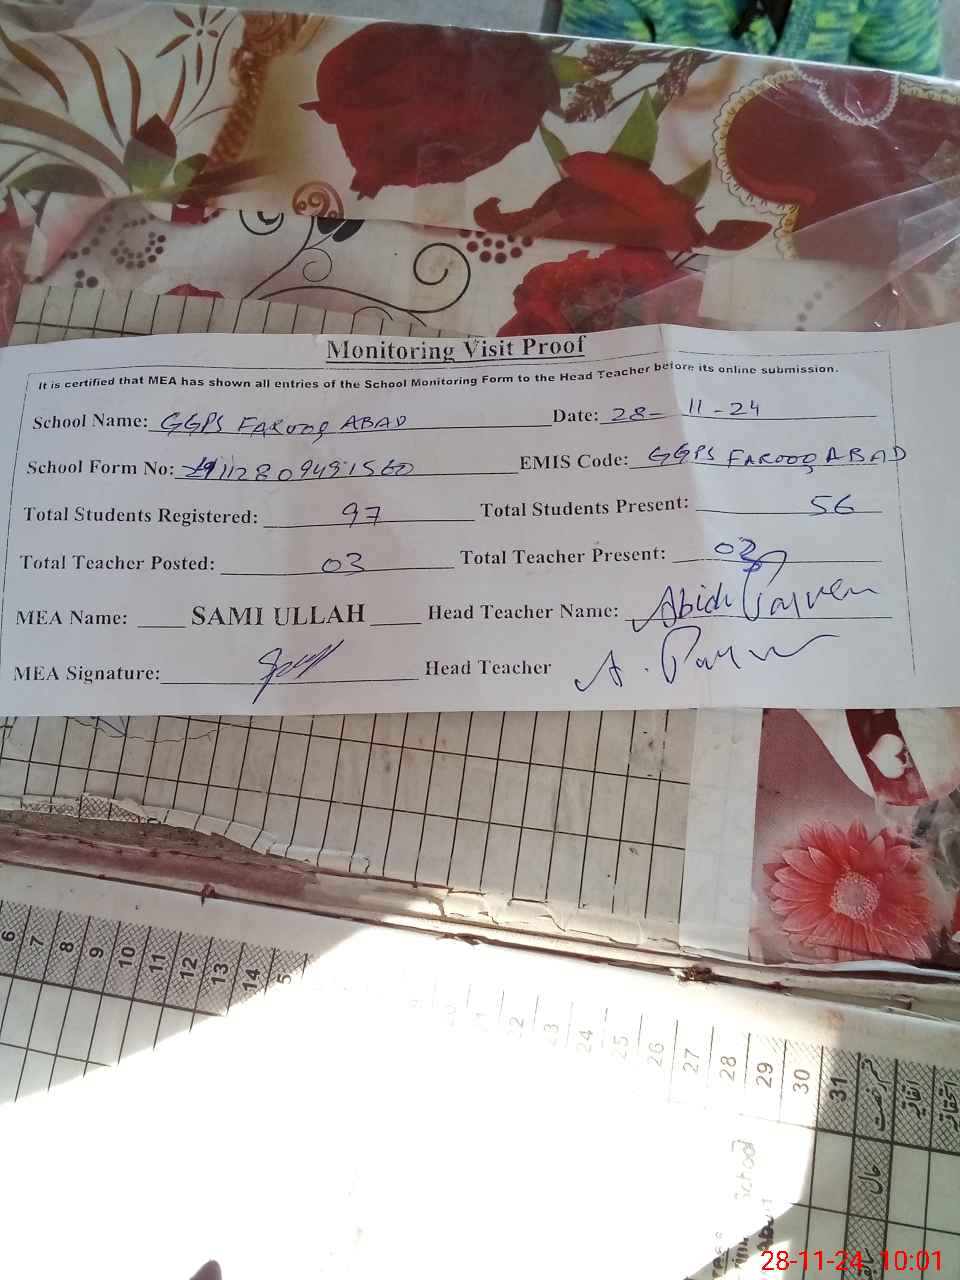 Monitoring Visit Proof
It is certified that MEA has shown all entries of the School Monitoring Form to the Head Teacher before its online submission.
School Name: GGPS FAROOQ ABAD Date: 28-11-24
School Form No: EMIS Code: GGPS FAROOQ ABAD
Total Students Registered: 97 Total Students Present: 56
Total Teacher Posted: 03 Total Teacher Present: 03
MEA Name: SAMI ULLAH Head Teacher Name: Abida Parveen
MEA Signature: Head Teacher A. Parveen
6 7 8 9 10 11 12 13 14 5 22 23 24 25 26 27 28 29 30 31
School
28-11-24 10:01